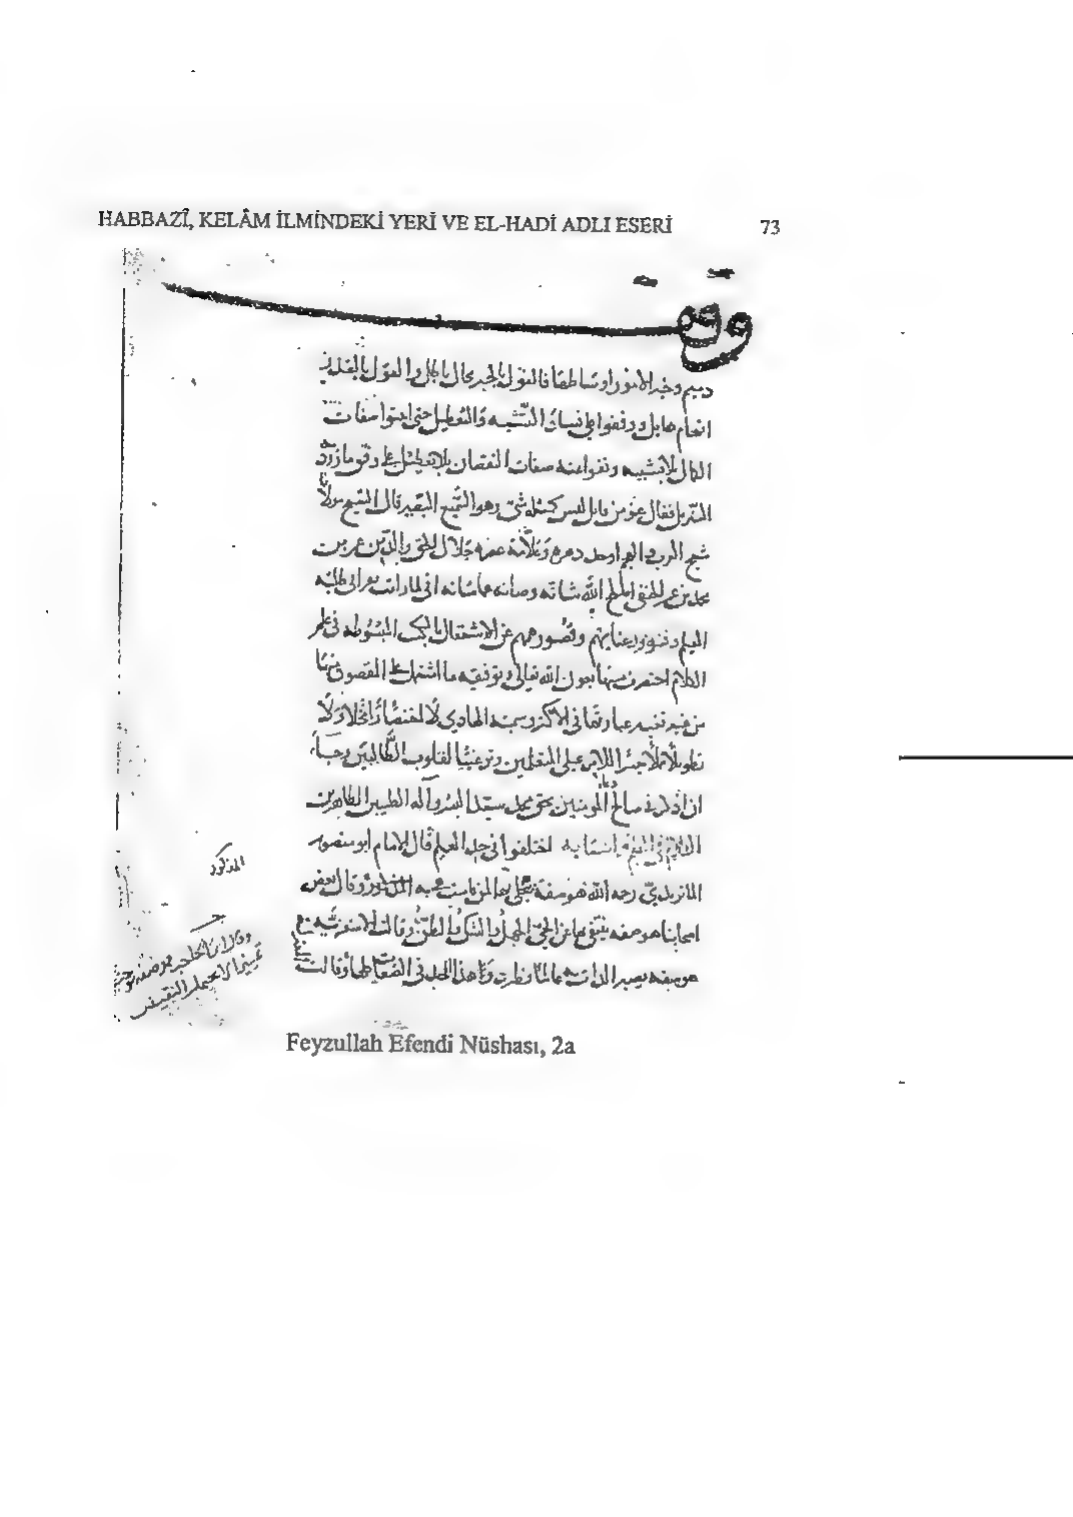 HABBAZÎ, KELÂM İLMİNDEKİ YERİ VE EL-HADİ ADLI ESERİ 73
وقف
ذميم وخير الامور اوساطها فالقول بالجبر محال باطل والقول بالقدر
اقحام هايل ووقفوا على انسداد التشبيه والتعطيل حتى اثبتوا صفات
الكمال بلا تشبيه ونفوا عنه صفات النقصان بلا تعطيل على وفق ما ورد
التنزيل فقال عز من قائل ليس كمثله شئ وهو السميع البصير قال الشيخ مولانا
شيخ العرب والعجم اوحد دهره وعلامة عصره جلال الحق والدين عمر بن
محمد بن عمر الحنفي الله شانه وصانه عما شانه اني لما رايت طلبة
العلم وفتور رغباتهم وقصور هممهم عن الاشتغال بالكتب المبسوطة في علم
الكلام اختصرت منها بعون الله تعالى وتوفيقه ما اشتمل على المقصود منها
من غير تغيير عباراتها في الاكثر وسميته الهادي لا اختصارا مخلا ولا
تطويلا مملا تيسيرا للامر على المتعلمين وترغيبا لقلوب الطالبين رجاء
ان اذكر في صالح دعاء المومنين بحق محمد سيد البشر وآله الطيبين الطاهرين
الكلام في العلم واسبابه اختلفوا في حد العلم قال الامام ابو منصور
الماتريدي رحمه الله هو صفة يتجلى بها لمن قامت هي به المذكور وقال بعض
اصحابنا هو صفة ينتفي بها عن الحي الجهل والشك والظن وقالت الاشعرية
هو صفة يصير الذات به عالما وهذا الحد في وقالت
المذكور
وقال ابن الحاجب هو صفة توجب
تمييزا لا يحتمل النقيض
Feyzullah Efendi Nüshası, 2a